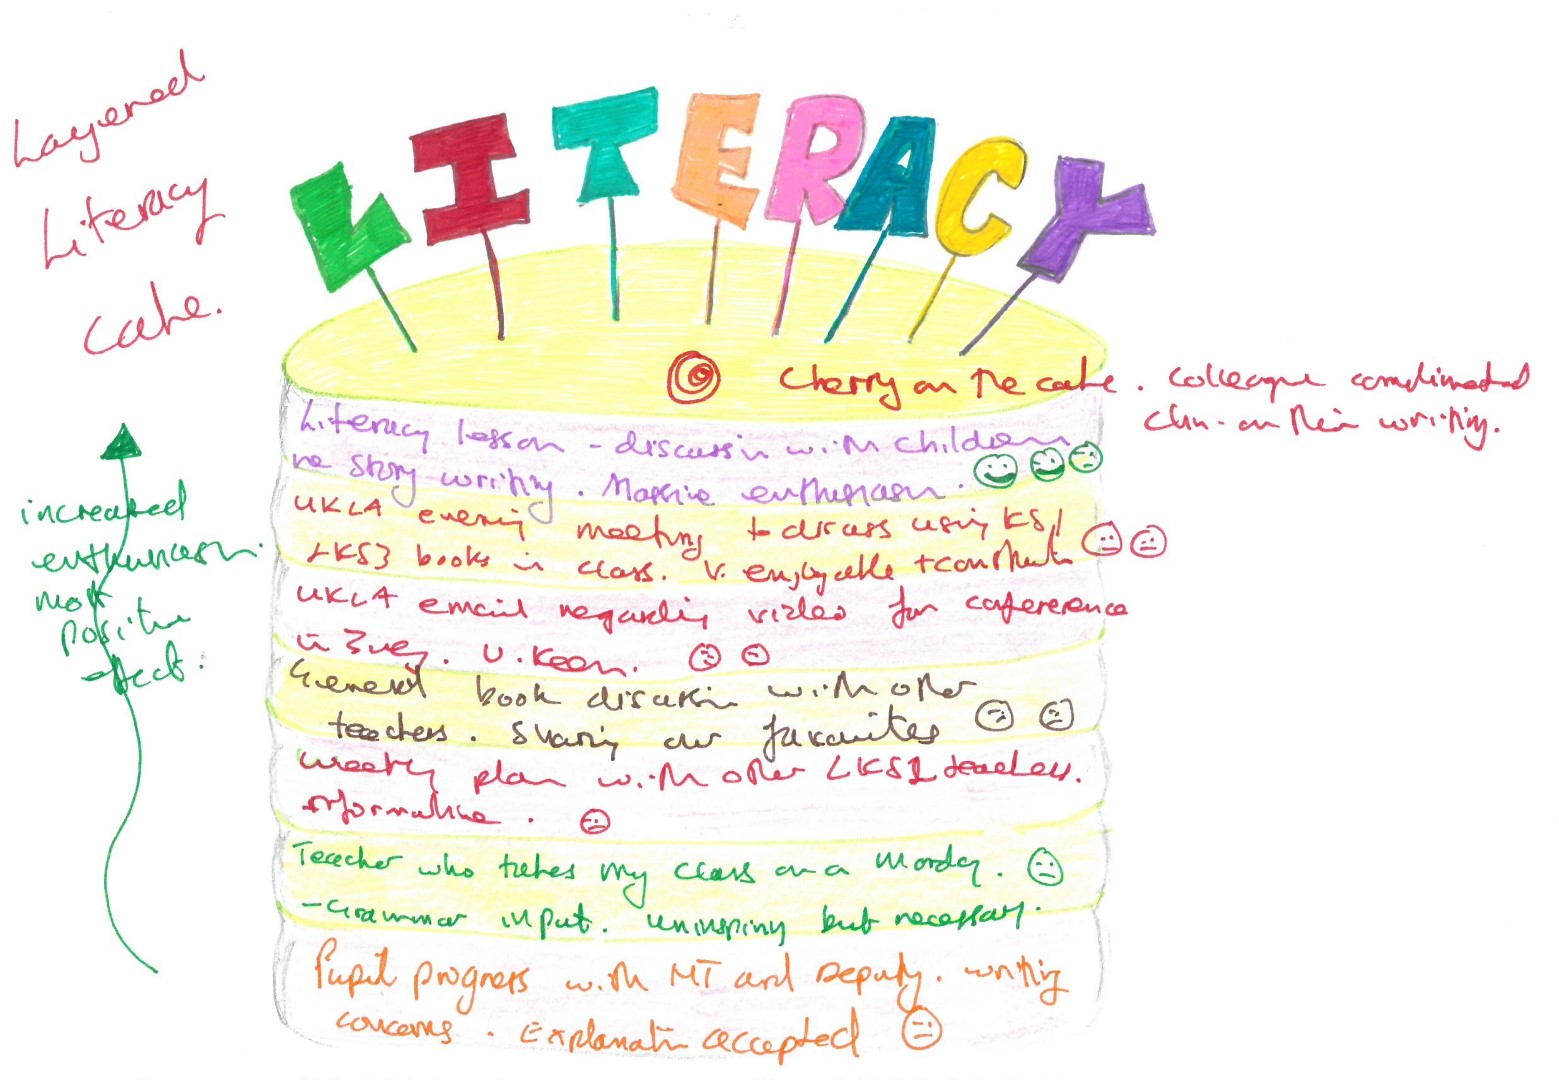 Layered
Literacy
Cake.
LITERACY
Cherry on the cake. Colleague complimented
chn. on their writing.
Literacy lesson - discussion with children
re story writing. Massive enthusiasm.
UKLA evening meeting to discuss using KS1
LKS3 books in class. V. enjoyable +
UKLA email regarding video for conference
in July. V. Keen.
General book discussion with other
teachers. Sharing our favourites
Weekly plan with other LKS2 teachers.
Informative.
Teacher who takes my class on a Monday.
- Grammar input. Uninspiring but necessary.
Pupil progress with HT and Deputy. Writing
concerns. Explanation accepted
increased
enthusiasm.
most
positive
effect.